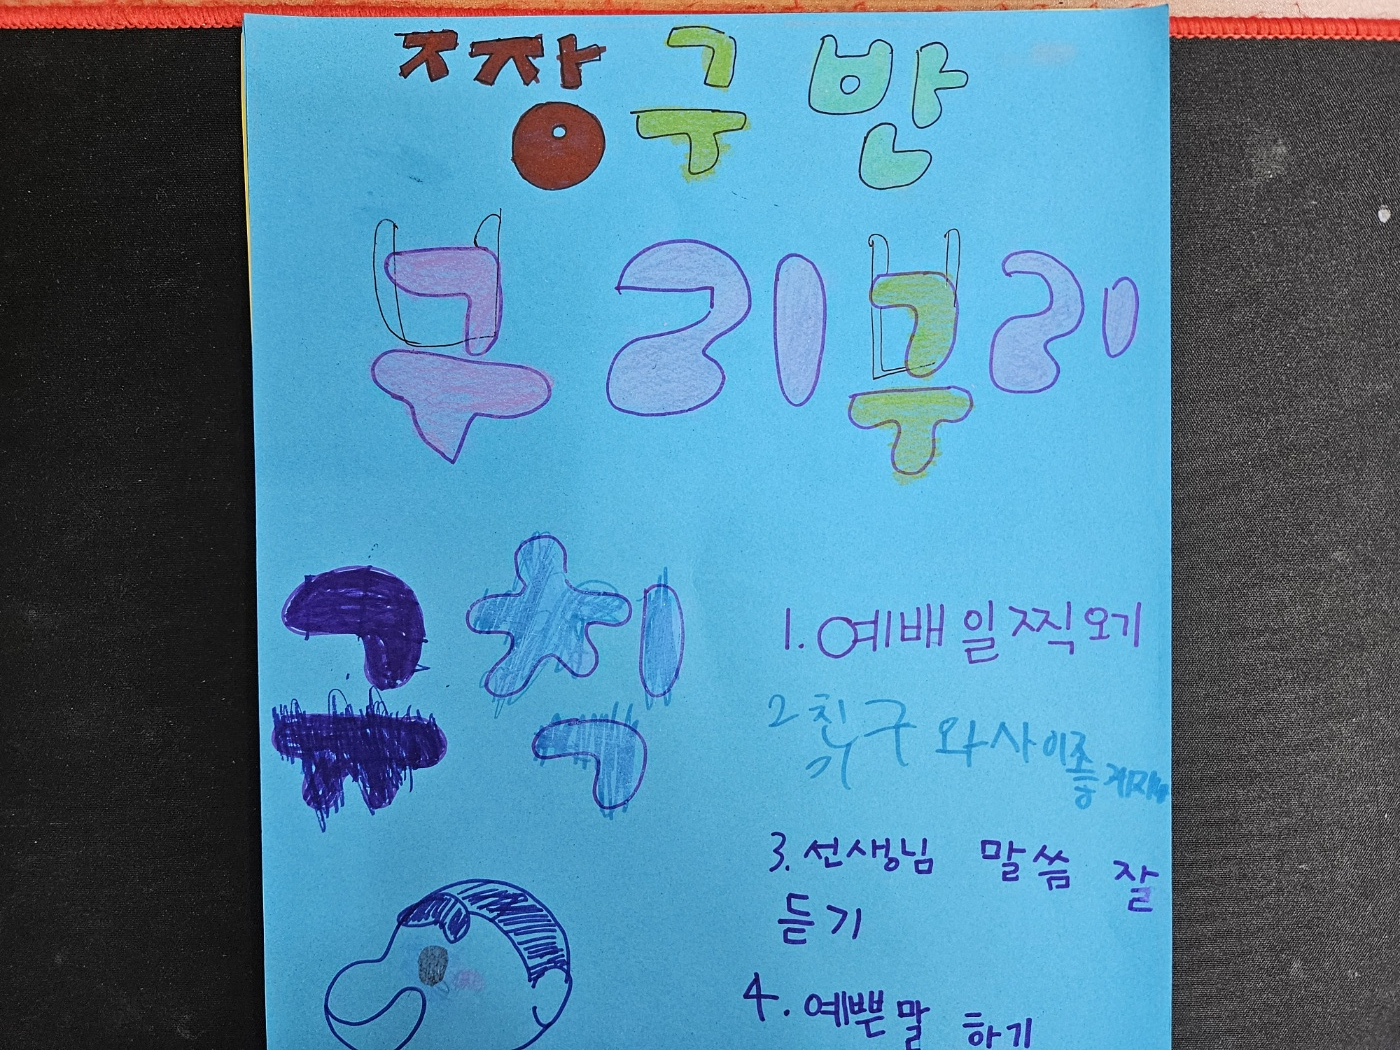 짱구반
부리부리
규칙
1. 예배 일찍 오기
2 친구와 사이좋게지내
3. 선생님 말씀 잘
듣기
4. 예쁜말 하기